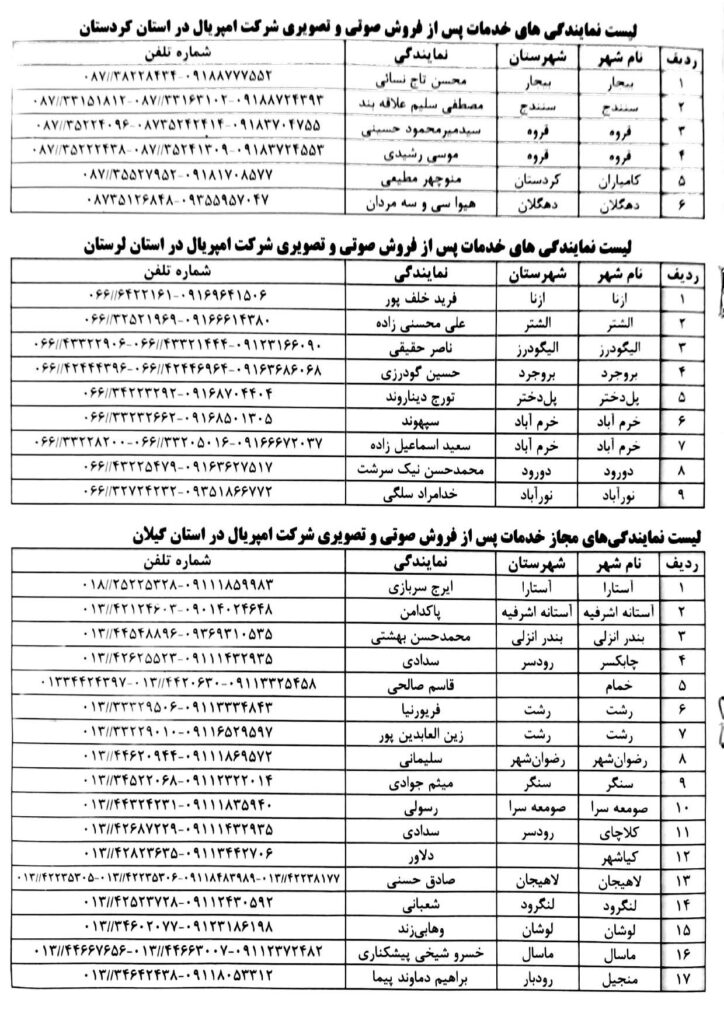 لیست نمایندگی های خدمات پس از فروش صوتی و تصویری شرکت امپریال در استان کردستان
ردیف نام شهر شهرستان نمایندگی شماره تلفن
۱ بیجار بیجار محسن تاج نسائی ۰۸۷//۳۸۲۲۸۴۳۴-۰۹۱۸۸۷۷۷۵۵۲
۲ سنندج سنندج مصطفی سلیم علاقه بند ۰۸۷//۳۳۱۵۱۸۱۲-۰۸۷//۳۳۱۶۳۱۰۲-۰۹۱۸۸۷۲۴۳۹۳
۳ قروه قروه سیدمیرمحمود حسینی ۰۸۷//۳۵۲۲۴۰۹۶-۰۸۷۳۵۲۴۲۴۱۴-۰۹۱۸۳۷۰۴۷۵۵
۴ قروه قروه موسی رشیدی ۰۸۷//۳۵۲۲۲۴۳۸-۰۸۷//۳۵۲۴۱۳۰۹-۰۹۱۸۳۷۲۴۵۵۳
۵ کامیاران کردستان منوچهر مطیعی ۰۸۷//۳۵۵۲۷۹۵۲-۰۹۱۸۱۷۰۸۵۷۷
۶ دهگلان دهگلان هیوا سی و سه مردان ۰۸۷۳۵۱۲۶۸۴۸-۰۹۳۵۵۹۵۷۰۴۷
لیست نمایندگی های خدمات پس از فروش صوتی و تصویری شرکت امپریال در استان لرستان
ردیف نام شهر شهرستان نمایندگی شماره تلفن
۱ ازنا ازنا فرید خلف پور ۰۶۶//۶۴۲۲۱۶۱-۰۹۱۶۹۶۴۱۵۰۶
۲ الشتر الشتر علی محسنی زاده ۰۶۶//۳۲۵۲۱۹۶۹-۰۹۱۶۶۶۱۴۳۸۰
۳ الیگودرز الیگودرز ناصر حقیقی ۰۶۶//۴۳۳۲۲۹۰۶-۰۶۶//۴۳۳۲۱۴۴۴-۰۹۱۲۳۱۶۶۰۹۰
۴ بروجرد بروجرد حسین گودرزی ۰۶۶//۴۲۴۴۴۳۹۶-۰۶۶//۴۲۴۴۶۹۶۴-۰۹۱۶۳۶۸۶۰۶۸
۵ پل‌دختر پل‌دختر تورج دیناروند ۰۶۶//۳۴۲۲۳۲۹۲-۰۹۱۶۸۷۰۴۴۰۴
۶ خرم آباد خرم آباد سپهوند ۰۶۶//۳۳۲۳۲۶۶۲-۰۹۱۶۸۵۰۱۳۰۵
۷ خرم آباد خرم آباد سعید اسماعیل زاده ۰۶۶//۳۳۲۲۸۲۰۰-۰۶۶//۳۳۲۰۵۰۱۶-۰۹۱۶۶۶۷۲۰۳۷
۸ دورود دورود محمدحسن نیک سرشت ۰۶۶//۴۳۲۲۵۴۷۹-۰۹۱۶۳۶۲۷۵۱۷
۹ نورآباد نورآباد خدامراد سلگی ۰۶۶//۳۲۷۲۴۲۳۲-۰۹۳۵۱۸۶۶۷۷۲
لیست نمایندگی‌های مجاز خدمات پس از فروش صوتی و تصویری شرکت امپریال در استان گیلان
ردیف نام شهر شهرستان نمایندگی شماره تلفن
۱ آستارا آستارا ایرج سربازی ۰۱۸//۲۵۲۲۵۳۲۸-۰۹۱۱۱۸۵۹۹۸۳
۲ آستانه اشرفیه آستانه اشرفیه پاکدامن ۰۱۳//۴۲۱۲۴۶۰۳-۰۹۰۱۴۰۲۴۶۴۸
۳ بندر انزلی بندر انزلی محمدحسن بهشتی ۰۱۳//۴۴۵۴۸۸۹۶-۰۹۳۶۹۳۱۰۵۳۵
۴ چابکسر رودسر سدادی ۰۱۳//۴۲۶۲۵۵۲۳-۰۹۱۱۱۴۳۲۹۳۵
۵ خمام قاسم صالحی ۰۱۳۳۴۴۲۴۳۹۷-۰۱۳//۴۴۲۰۶۳۰-۰۹۱۱۳۳۲۵۴۵۸
۶ رشت رشت فریورنیا ۰۱۳//۳۳۳۲۹۵۰۶-۰۹۱۱۳۳۳۴۸۴۳
۷ رشت رشت زین العابدین پور ۰۱۳//۳۳۲۲۹۰۱۰-۰۹۱۱۶۵۲۹۵۹۷
۸ رضوان‌شهر رضوان‌شهر سلیمانی ۰۱۳//۴۴۶۲۰۹۴۴-۰۹۱۱۱۸۶۹۵۷۲
۹ سنگر سنگر میثم جوادی ۰۱۳//۳۴۵۲۲۰۶۸-۰۹۱۱۲۳۲۲۰۱۴
۱۰ صومعه سرا صومعه سرا رسولی ۰۱۳//۴۴۳۲۴۲۳۱-۰۹۱۱۱۸۳۵۹۴۰
۱۱ کلاچای رودسر سدادی ۰۱۳//۴۲۶۸۷۲۲۹-۰۹۱۱۱۴۳۲۹۳۵
۱۲ کیاشهر دلاور ۰۱۳//۴۲۸۲۳۶۳۵-۰۹۱۱۳۴۴۲۷۰۶
۱۳ لاهیجان لاهیجان صادق حسنی ۰۱۳//۴۲۲۳۵۳۰۵-۰۱۳//۴۲۲۳۵۳۰۶-۰۹۱۱۸۴۸۳۹۸۹-۰۱۳//۴۲۲۳۸۱۷۷
۱۴ لنگرود لنگرود شعبانی ۰۱۳//۴۲۵۲۳۷۲۸-۰۹۱۱۲۴۳۰۵۹۲
۱۵ لوشان لوشان وهابی‌زند ۰۱۳//۳۴۶۰۲۰۷۷-۰۹۱۲۳۱۸۶۱۹۸
۱۶ ماسال ماسال خسرو شیخی پیشکناری ۰۱۳//۴۴۶۶۷۶۵۶-۰۱۳//۴۴۶۶۳۰۰۷-۰۹۱۱۲۳۷۲۴۸۲
۱۷ منجیل رودبار براهیم دماوند پیما ۰۱۳//۳۴۶۴۲۴۳۸-۰۹۱۱۸۰۵۳۳۱۲